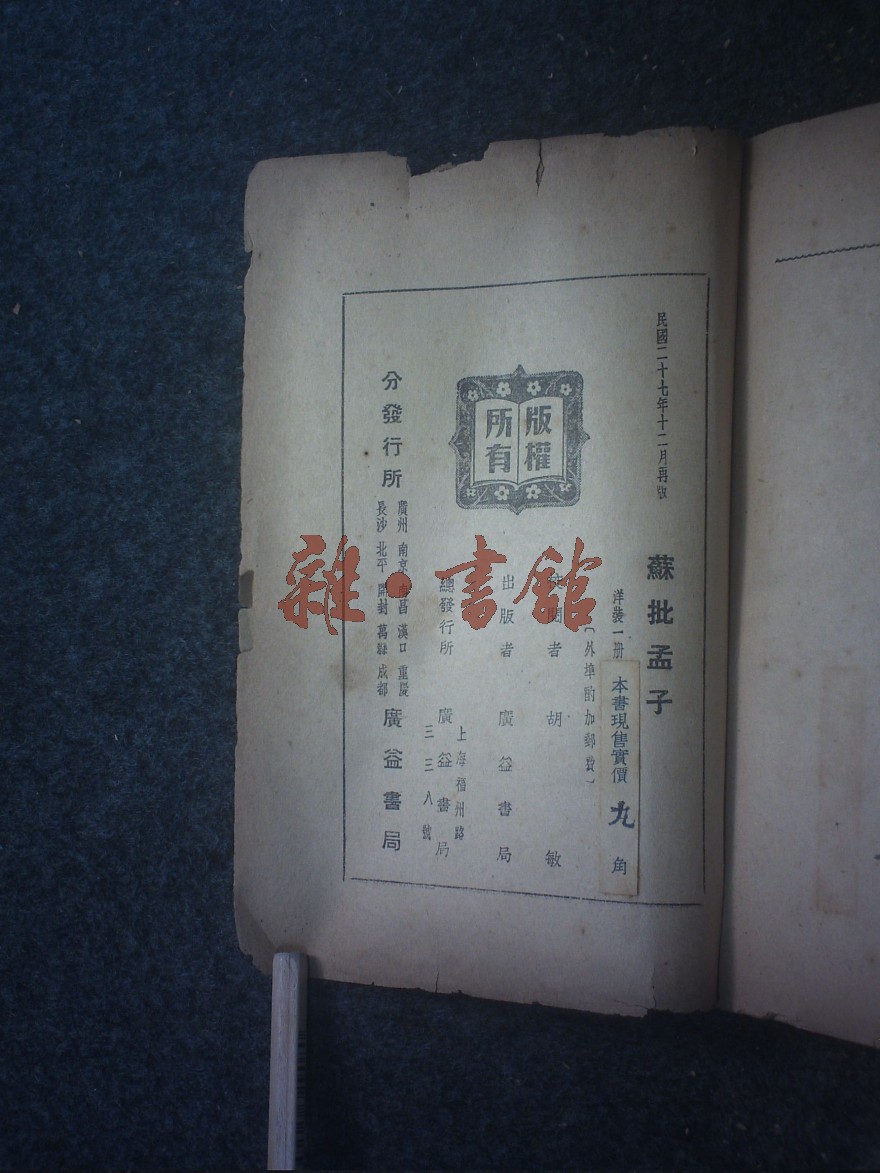 民國二十七年十二月再版
蘇批孟子
洋裝一册
本書現售實價九角
（外埠酌加郵費）
閱者 胡敏
出版者 廣益書局
總發行所 廣益書局
上海福州路
三三八號
分發行所
廣州 南京 南昌 漢口 重慶
長沙 北平 開封 萬縣 成都
廣益書局
版權
所有
雜·書館